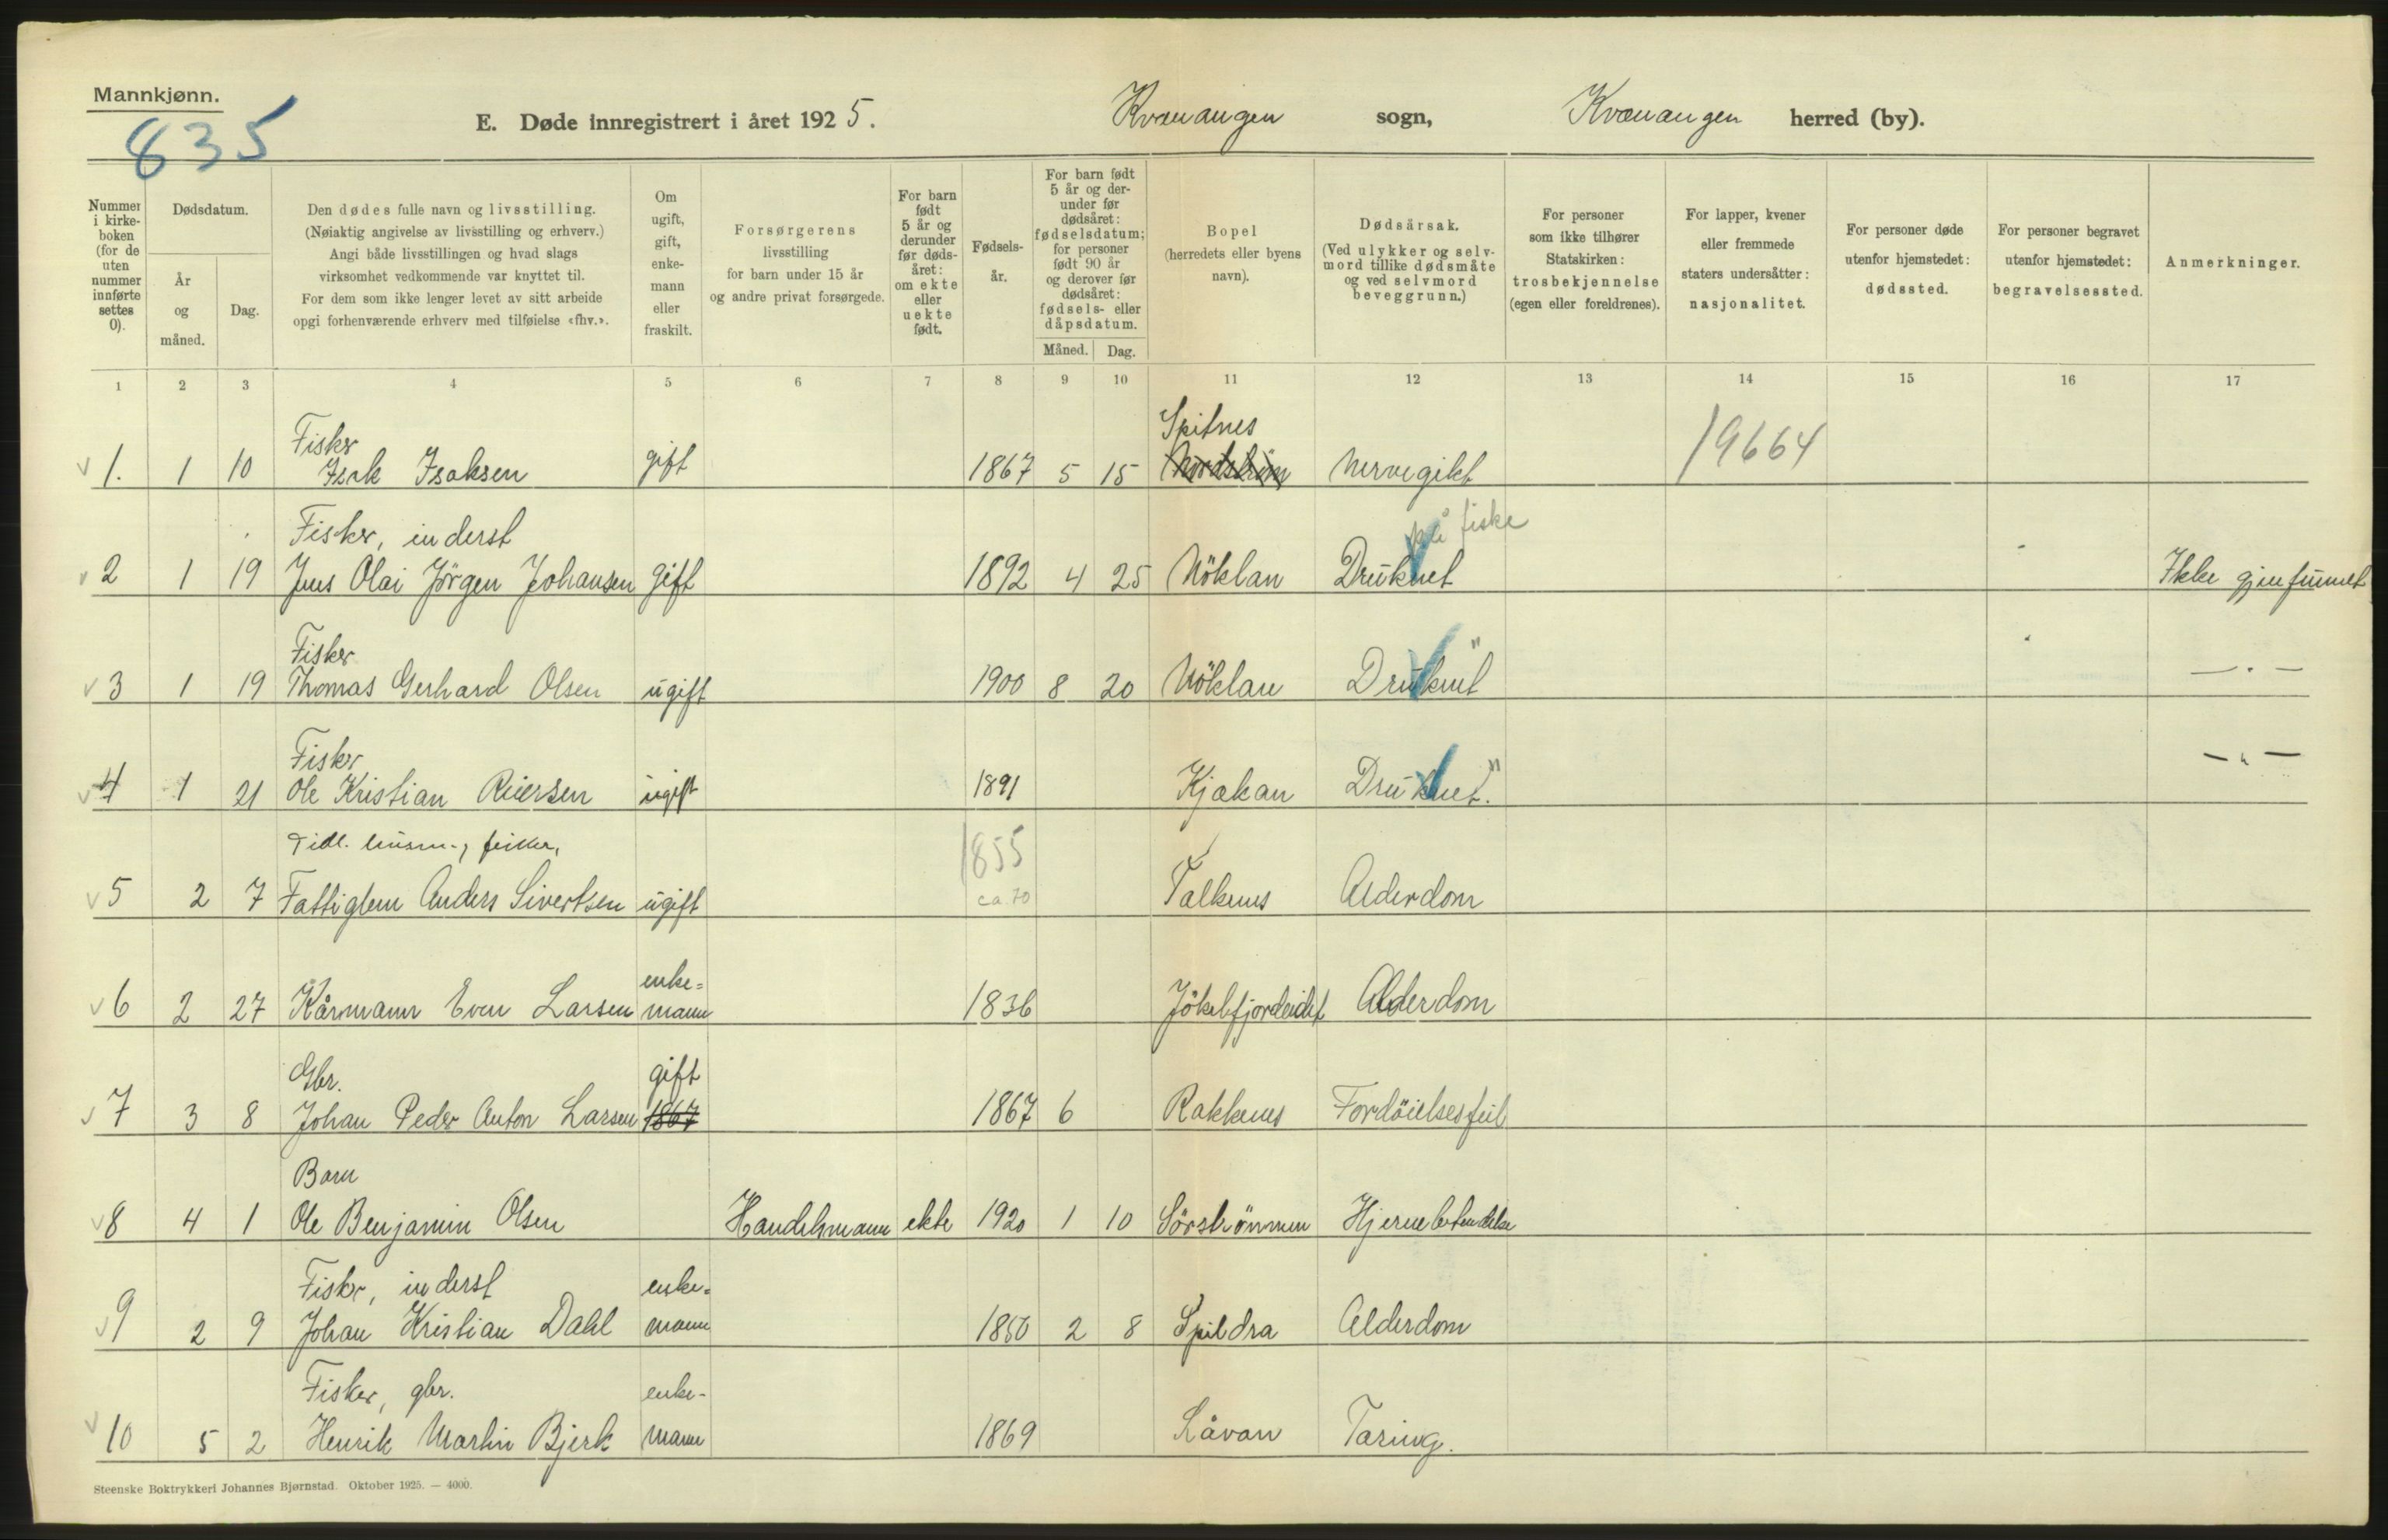 Mannkjønn.
835
E. Døde innregistrert i året 1925. Kvænangen sogn, Kvænangen herred (by).
Nummer i kirke-boken (for de uten nummer innførte settes 0).
Dødsdatum.
År og måned.
Dag.
Den dødes fulle navn og livsstilling.
(Nøiaktig angivelse av livsstilling og erhverv.)
Angi både livsstillingen og hvad slags
virksomhet vedkommende var knyttet til.
For dem som ikke lenger levet av sitt arbeide
opgi forhenværende erhverv med tilføielse «fhv.».
Om ugift, gift, enke-mann eller fraskilt.
Forsørgerens
livsstilling
for barn under 15 år
og andre privat forsørgede.
For barn født 5 år og derunder før døds-året: om ekte eller uekte født.
Fødsels-år.
For barn født 5 år og der-under før dødsåret: fødselsdatum; for personer født 90 år og derover før dødsåret: fødsels- eller dåpsdatum.
Måned. Dag.
Bopel
(herredets eller byens navn).
Dødsårsak.
(Ved ulykker og selv-mord tillike dødsmåte og ved selvmord beveggrunn.)
For personer som ikke tilhører Statskirken: trosbekjennelse (egen eller foreldrenes).
For lapper, kvener eller fremmede staters undersåtter: nasjonalitet.
For personer døde utenfor hjemstedet: dødssted.
For personer begravet utenfor hjemstedet: begravelsessted.
Anmerkninger.
1 2 3 4 5 6 7 8 9 10 11 12 13 14 15 16 17
Fisker Spitnes
1. 1 10 Isak Isaksen gift 1867 5 15 Nordström Nervegikt 19664
Fisker, inderst på fiske
2 1 19 Jens Olai Jörgen Johansen gift 1892 4 25 Nöklan Druknet Ikke gjenfunnet
Fisker "
3 1 19 Thomas Gerhard Olsen ugift 1900 8 20 Nöklan Druknet — . —
Fisker " — " —
4 1 21 Ole Kristian Reiersen ugift 1891 Kjækan Druknet.
Tidl. husm., fisker, 1855
5 2 7 Fattiglem Anders Sivertsen ugift ca. 70 Alderdom
enke=
6 2 27 Kårmann Even Larsen mann 1836 Jökelfjordeidet Alderdom
Gbr. gift
7 3 8 Johan Peder Anton Larsen 1867 1867 6 Rakkenes Fordöielsesfeil
Barn
8 4 1 Ole Benjamin Olsen Handelsmann ekte 1920 1 10 Sörströmmen Hjernebetendelse
Fisker, inderst enke=
9 2 9 Johan Kristian Dahl mann 1850 2 8 Spildra Alderdom
Fisker, gbr. enke-
10 5 2 Henrik Martin Bjerk mann 1869 Låvan Tæring.
Steenske Boktrykkeri Johannes Bjørnstad. Oktober 1925. — 4000.